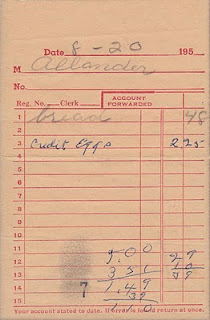 Date 8-20 195
M Allander
No.
Reg. No. Clerk ACCOUNT FORWARDED
1 bread 48
2
3 Credit Eggs 2 25
4
5
6
7
8
9
10
11 5.00
12 3 51
13
14 7 1.49
15 39
Your account stated to date. If error is found return at once.
1.10